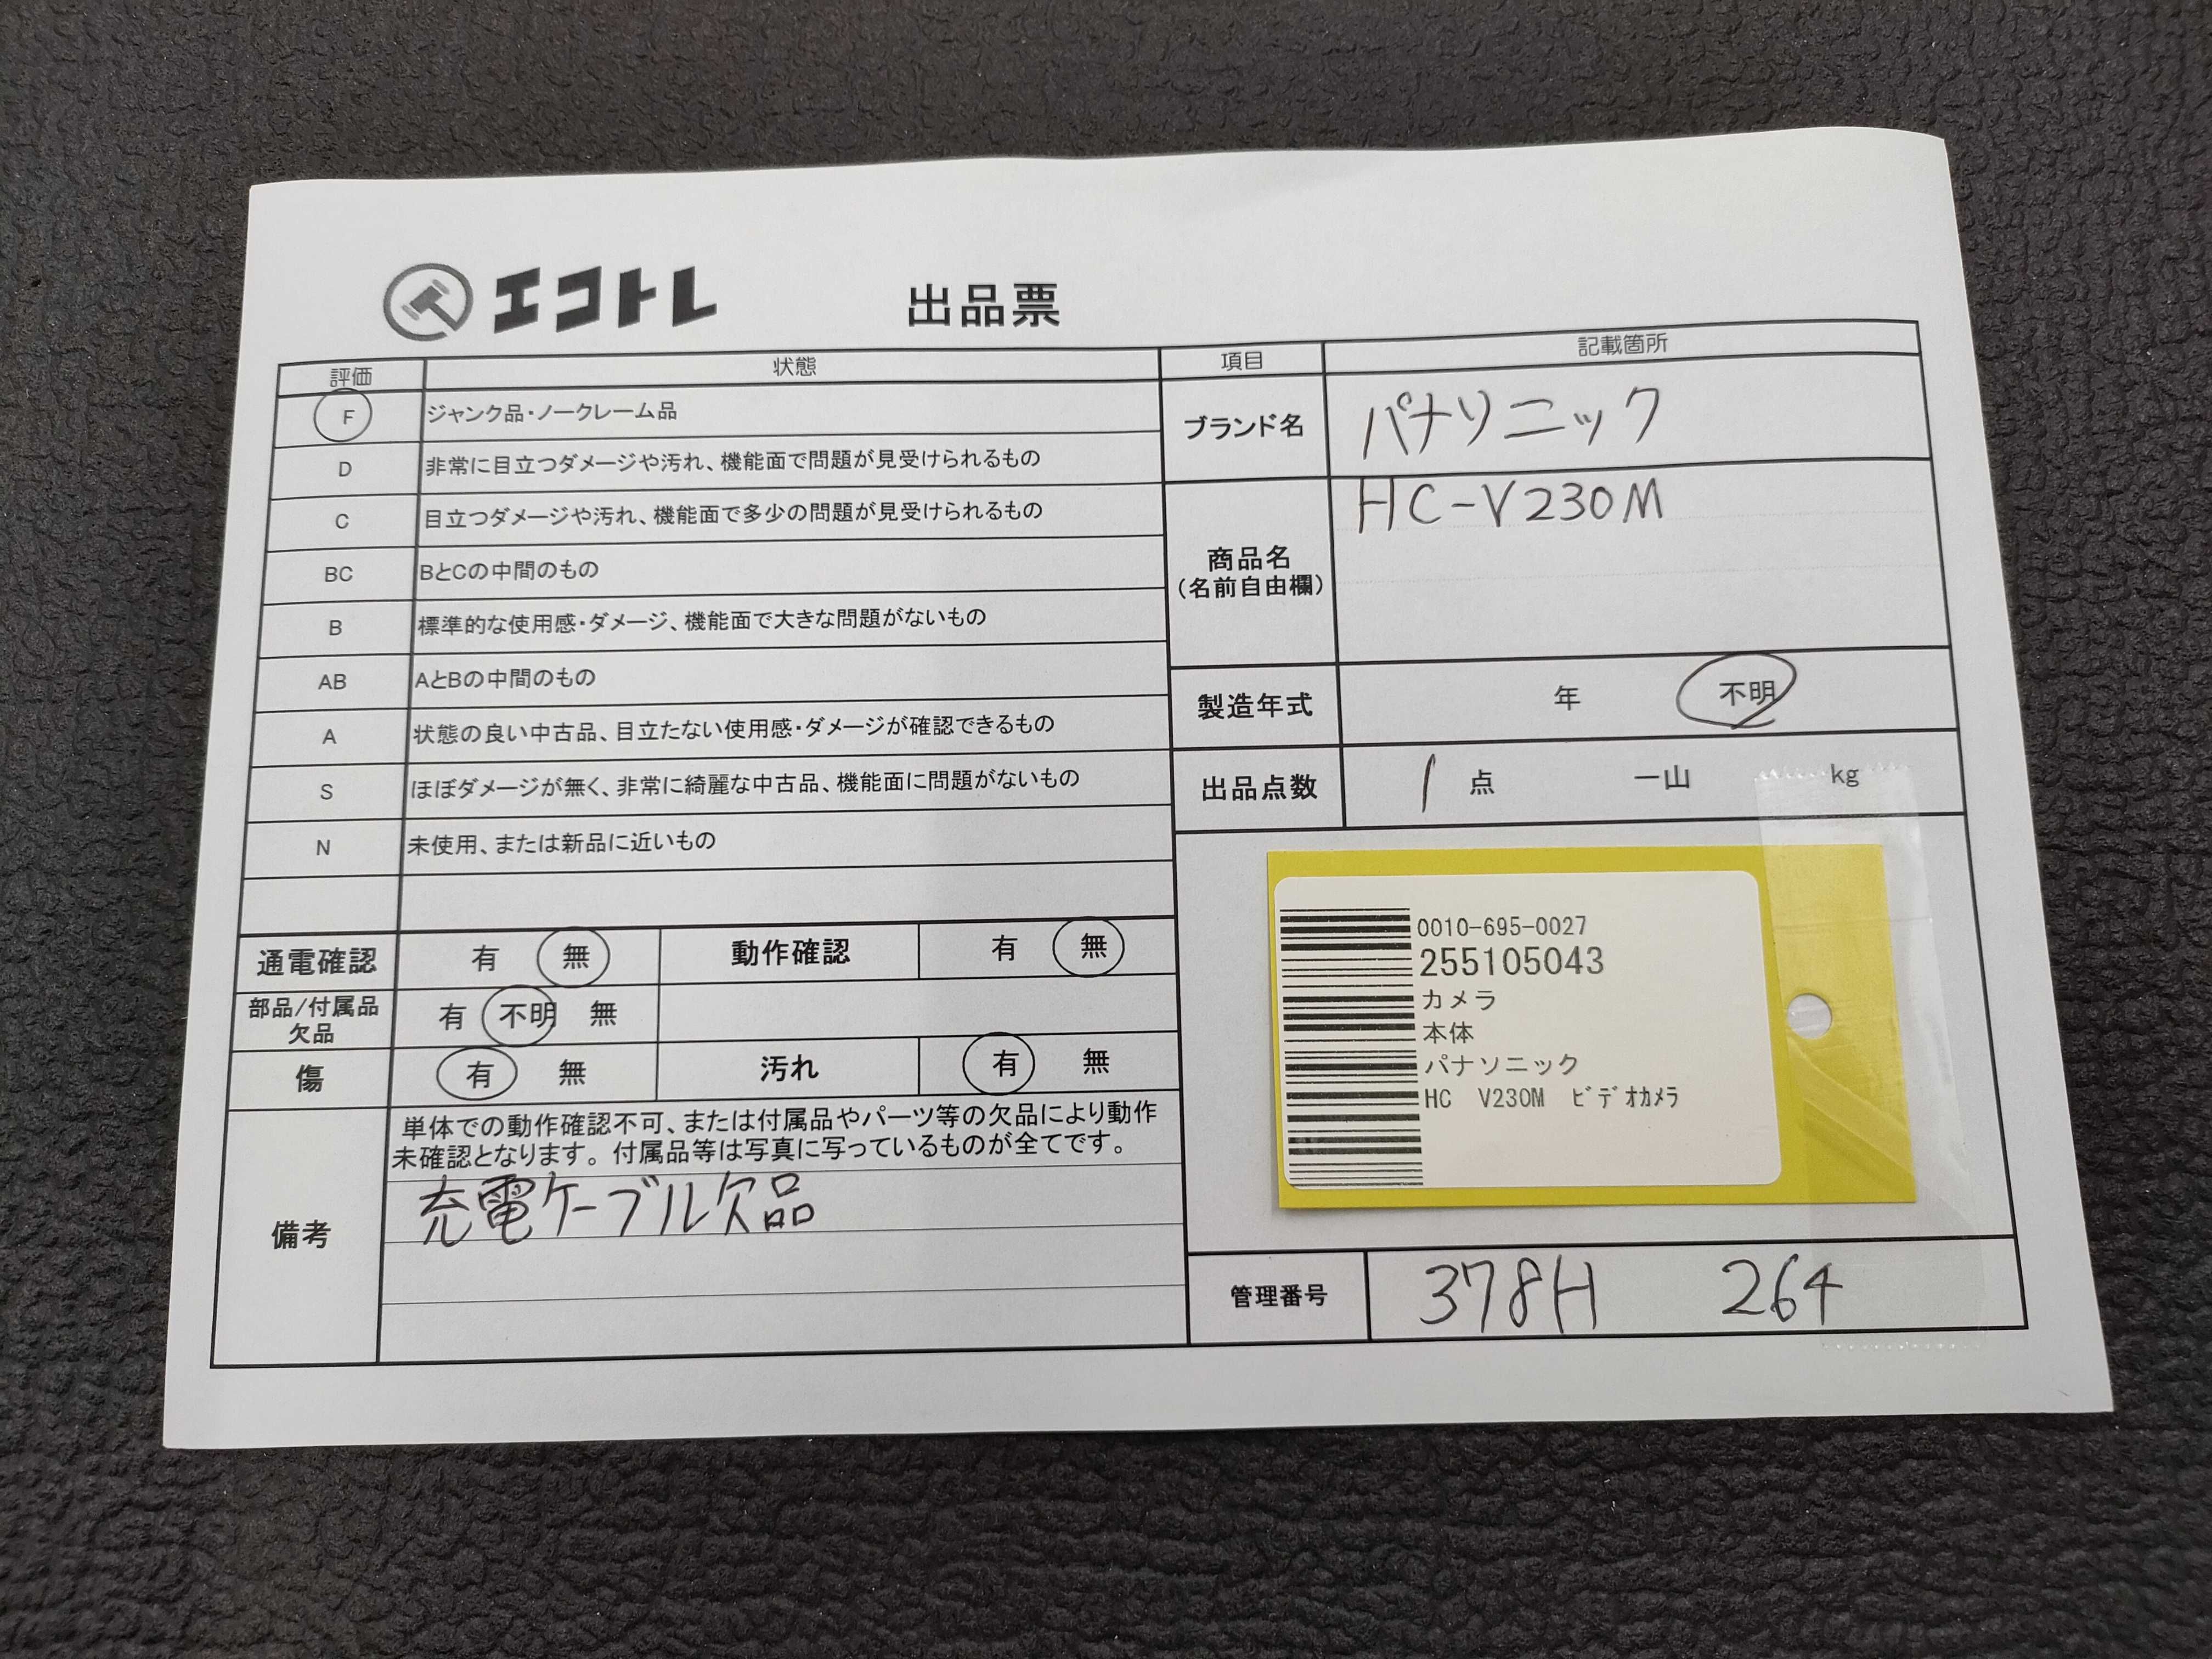 エコトレ
出品票
評価 状態
F ジャンク品・ノークレーム品
D 非常に目立つダメージや汚れ、機能面で問題が見受けられるもの
C 目立つダメージや汚れ、機能面で多少の問題が見受けられるもの
BC BとCの中間のもの
B 標準的な使用感・ダメージ、機能面で大きな問題がないもの
AB AとBの中間のもの
A 状態の良い中古品、目立たない使用感・ダメージが確認できるもの
S ほぼダメージが無く、非常に綺麗な中古品、機能面に問題がないもの
N 未使用、または新品に近いもの
通電確認 有 無 動作確認 有 無
部品/付属品
欠品
有 不明 無
傷 有 無 汚れ 有 無
備考
単体での動作確認不可、または付属品やパーツ等の欠品により動作
未確認となります。付属品等は写真に写っているものが全てです。
充電ケーブル欠品
項目 記載箇所
ブランド名 パナソニック
商品名
(名前自由欄)
HC-V230M
製造年式 年 不明
出品点数 1 点 一山 kg
0010-695-0027
255105043
カメラ
本体
パナソニック
HC V230M ﾋﾞﾃﾞｵｶﾒﾗ
管理番号 378H 264